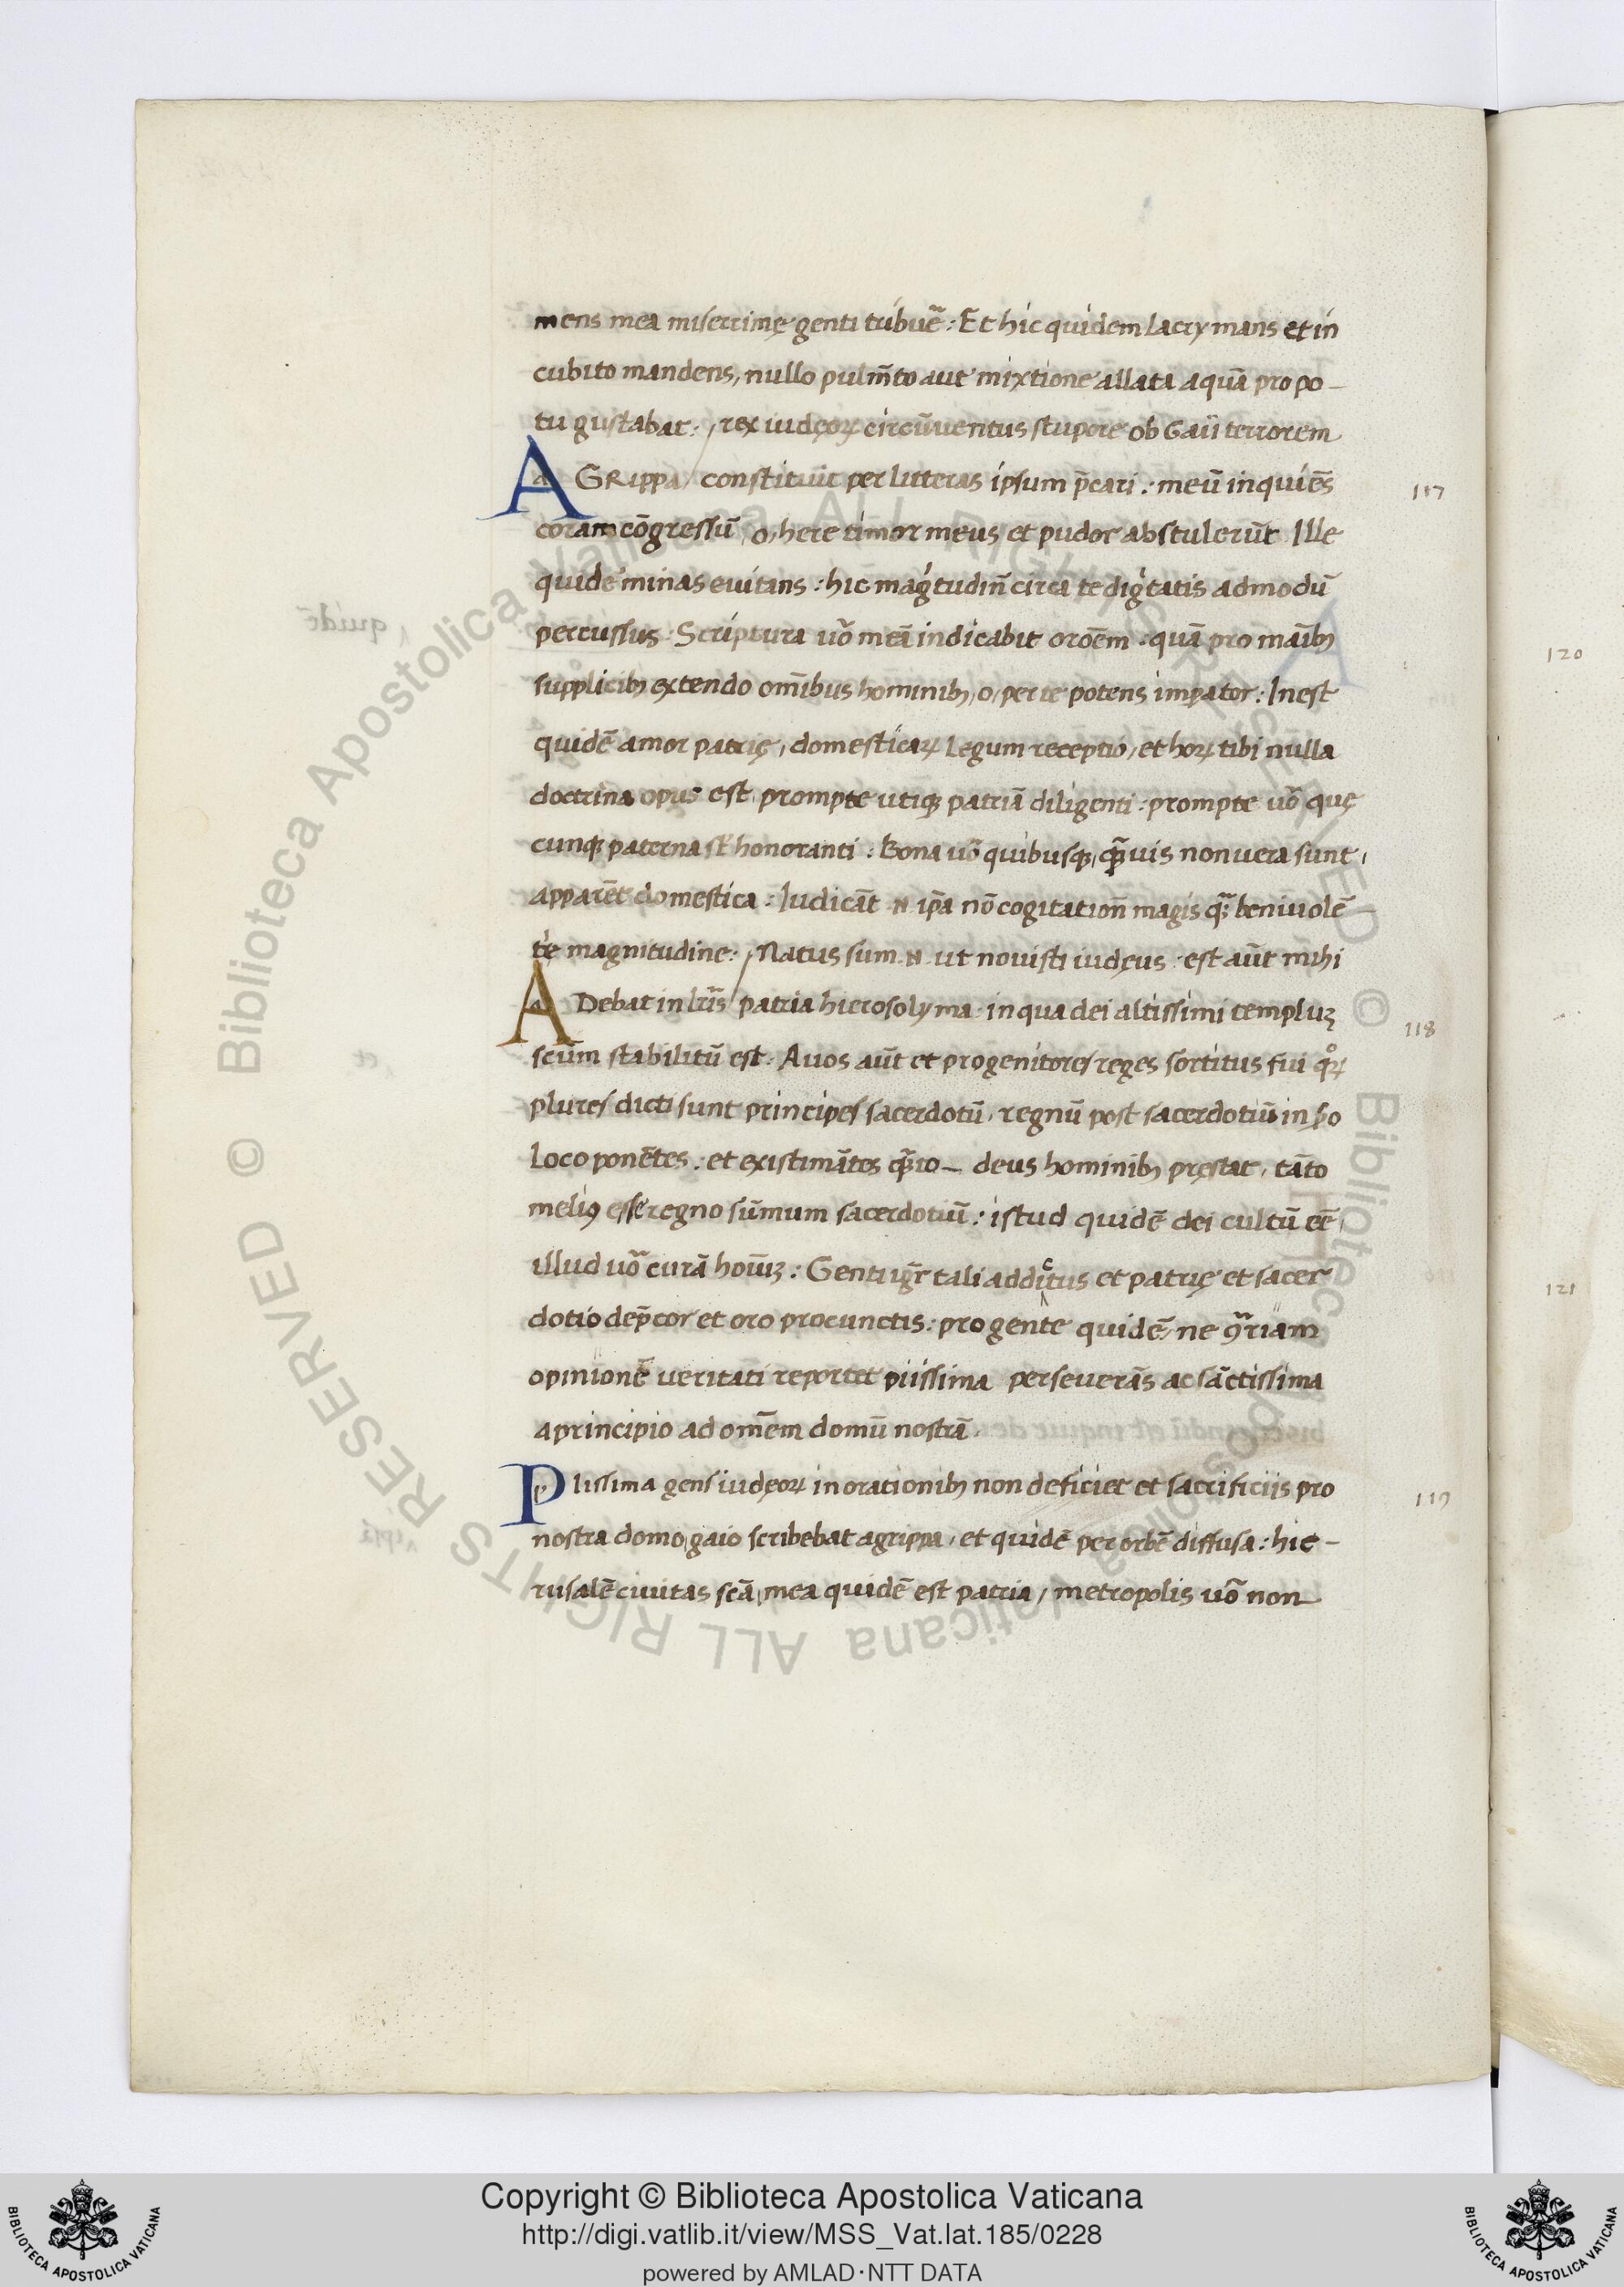 mens mea miserrimę genti tribuē: Et hic quidem lacrymans et in
cubito mandens, nullo pulm̄to aut mixtione allata aquā pro po-
tu gustabat: / rex iudęoꝝ circūuentus stupore ob Gaii terrorem
AGRippa / constituit per litteras ipsum p̄cari: meū inquiēs
coram cōgressū, o, here timor meus et pudor abstulerūt Ille
quidē minas euitans: hic mag̍tudin̄ circa te dig̍tatis admodū
percussus: Scriptura uo᷃ meā indicabit oroēm: quā pro maībꝫ
supplicibꝫ extendo om̄ibus hominibꝫ, o, per te potens imꝑator: Inest
quidē amor patrię, domesticaꝝ legum receptio, et hoꝝ tibi nulla
doctrina opus est prompte utiqꝫ patriā diligenti: prompte uo᷃ quę
cunqꝫ paterna st̄ honoranti: Bona uo᷃ quibusqꝫ, qᷓuis non uera sunt,
apparēt domestica: Iudicāt .N. ip̄a nō cogitation̄ magis qᷓꝫ beniuolē
tę magnitudine: / Natus sum .N. ut nouisti iudęus: est aūt mihi
ADebat in lr̄is / patria hierosolyma: in qua dei altissimi templuꝫ
scūm stabilitū est: Auos aūt et progenitores reges sortitus fui qͦꝝ
plures dicti sunt principes sacerdotū, regnū post sacerdotiū in ẜo
loco ponētes: et existimātes qᷓto- deus hominibꝫ pręstat, tāto
meliꝰ esse regno sūmum sacerdotiū: istud quidē dei cultū eē
illud uo᷃ curā hoīuꝫ: Genti igr̄ tali addictus et patrię et sacer
dotio dep̄cor et oro pro cunctis: pro gente quidē, ne ꝯᷓriam
opinionē veritati reportet piissima perseverās ac sāctissima
a principio ad omēm domū nostrā.
PIissima gens iudęoꝝ in orationibꝫ non deficiet et sacrificiis pro
nostra domo, gaio scribebat agrippa, et quidē per orbē diffusa: hie-
rusalē civitas scā, mea quidē est patria, metropolis uo᷃ non
117
118
119
120
121
Copyright © Biblioteca Apostolica Vaticana
http://digi.vatlib.it/view/MSS_Vat.lat.185/0228
powered by AMLAD·NTT DATA
BIBLIOTECA APOSTOLICA VATICANA
BIBLIOTECA APOSTOLICA VATICANA
© Biblioteca Apostolica Vaticana ALL RIGHTS RESERVED © Biblioteca Apostolica Vaticana ALL RIGHTS RESERVED